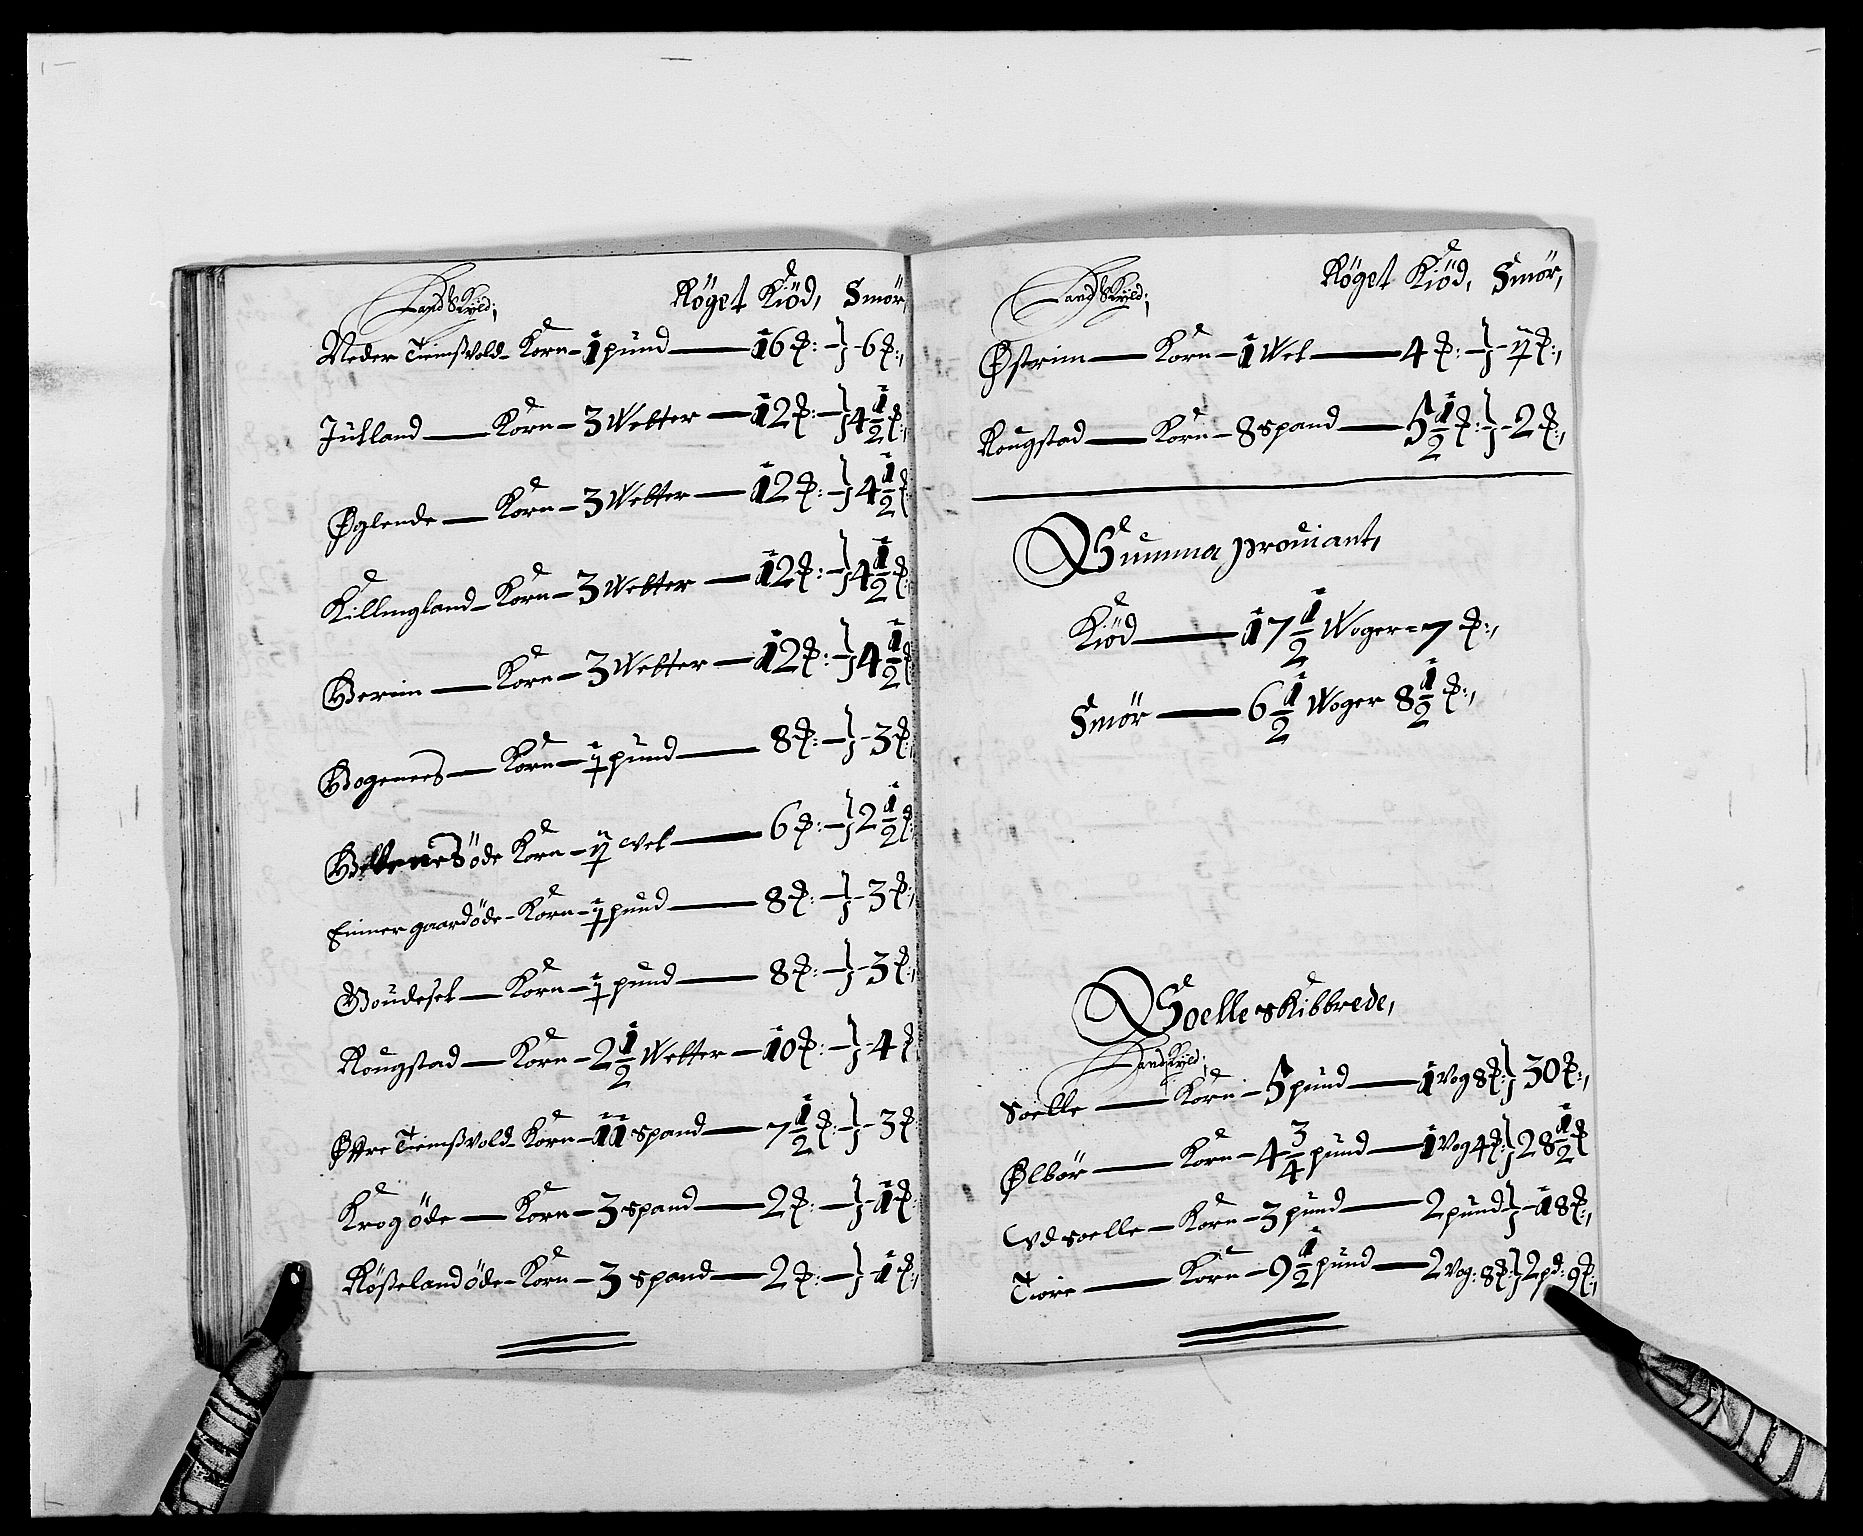 Land Skyld; Röget Kiöd, Smör,
Neder Tiemßvold - Korn - 1 pund — 16 ℔: - 6 ℔:,
Jütland — Korn - 3 Wetter — 12 ℔: - 4 1/2 ℔:,
Øglende — Korn - 3 Wetter — 12 ℔: - 4 1/2 ℔
Killingland - Korn - 3 Wetter — 12 ℔: - 4 1/2 ℔:
Berim — Korn - 3 Wetter — 12 ℔: - 4 1/2 ℔
Bogenees — Korn - 1/2 pund — 8 ℔: - 3 ℔:,
öde Korn - wet — 6 ℔: - 2 1/2 ℔:
Eimergaardöde - Korn - 1/2 pund — 8 ℔: - 3 ℔:,
Boudeset — Korn - 1/2 pund — 8 ℔: - 3 ℔:,
Rougstad — Korn - 2 1/2 Wetter — 10 ℔: - 4 ℔
Øffre Tiemßvold - Korn - 11 spand — 7 1/2 ℔: - 3 ℔
Krogöde — Korn - 3 spand — 2 ℔: - 1 ℔:
Rößelandöde - Korn - 3 spand — 2 ℔: - 1 ℔:,
Land Skyld; Röget Kiöd, Smör,
Østrim — Korn - 1 Wet — 4 ℔: - ℔:,
Rougstad — Korn - 8 spand — 5 1/2 ℔: - 2 ℔:,
Summa proviant,
Kiöd — 17 1/2 Woger = 7 ℔:,
Smör — 6 1/2 Woger 8 1/2 ℔:,
Soelle skibbrede,
Land Skyld;
Soelle — Korn - 5 pund — 1 Vog 8 ℔: 30 ℔:,
Ølbör — Korn - 4 3/4 pund — 1 Vog 4 ℔: 28 1/2 ℔
Vdsoelle - Korn - 3 pund — 2 pund - 18 ℔:,
Tiore — Korn - 9 1/2 pund — 2 Vog: 8 ℔: 2 pd: 9 ℔:,